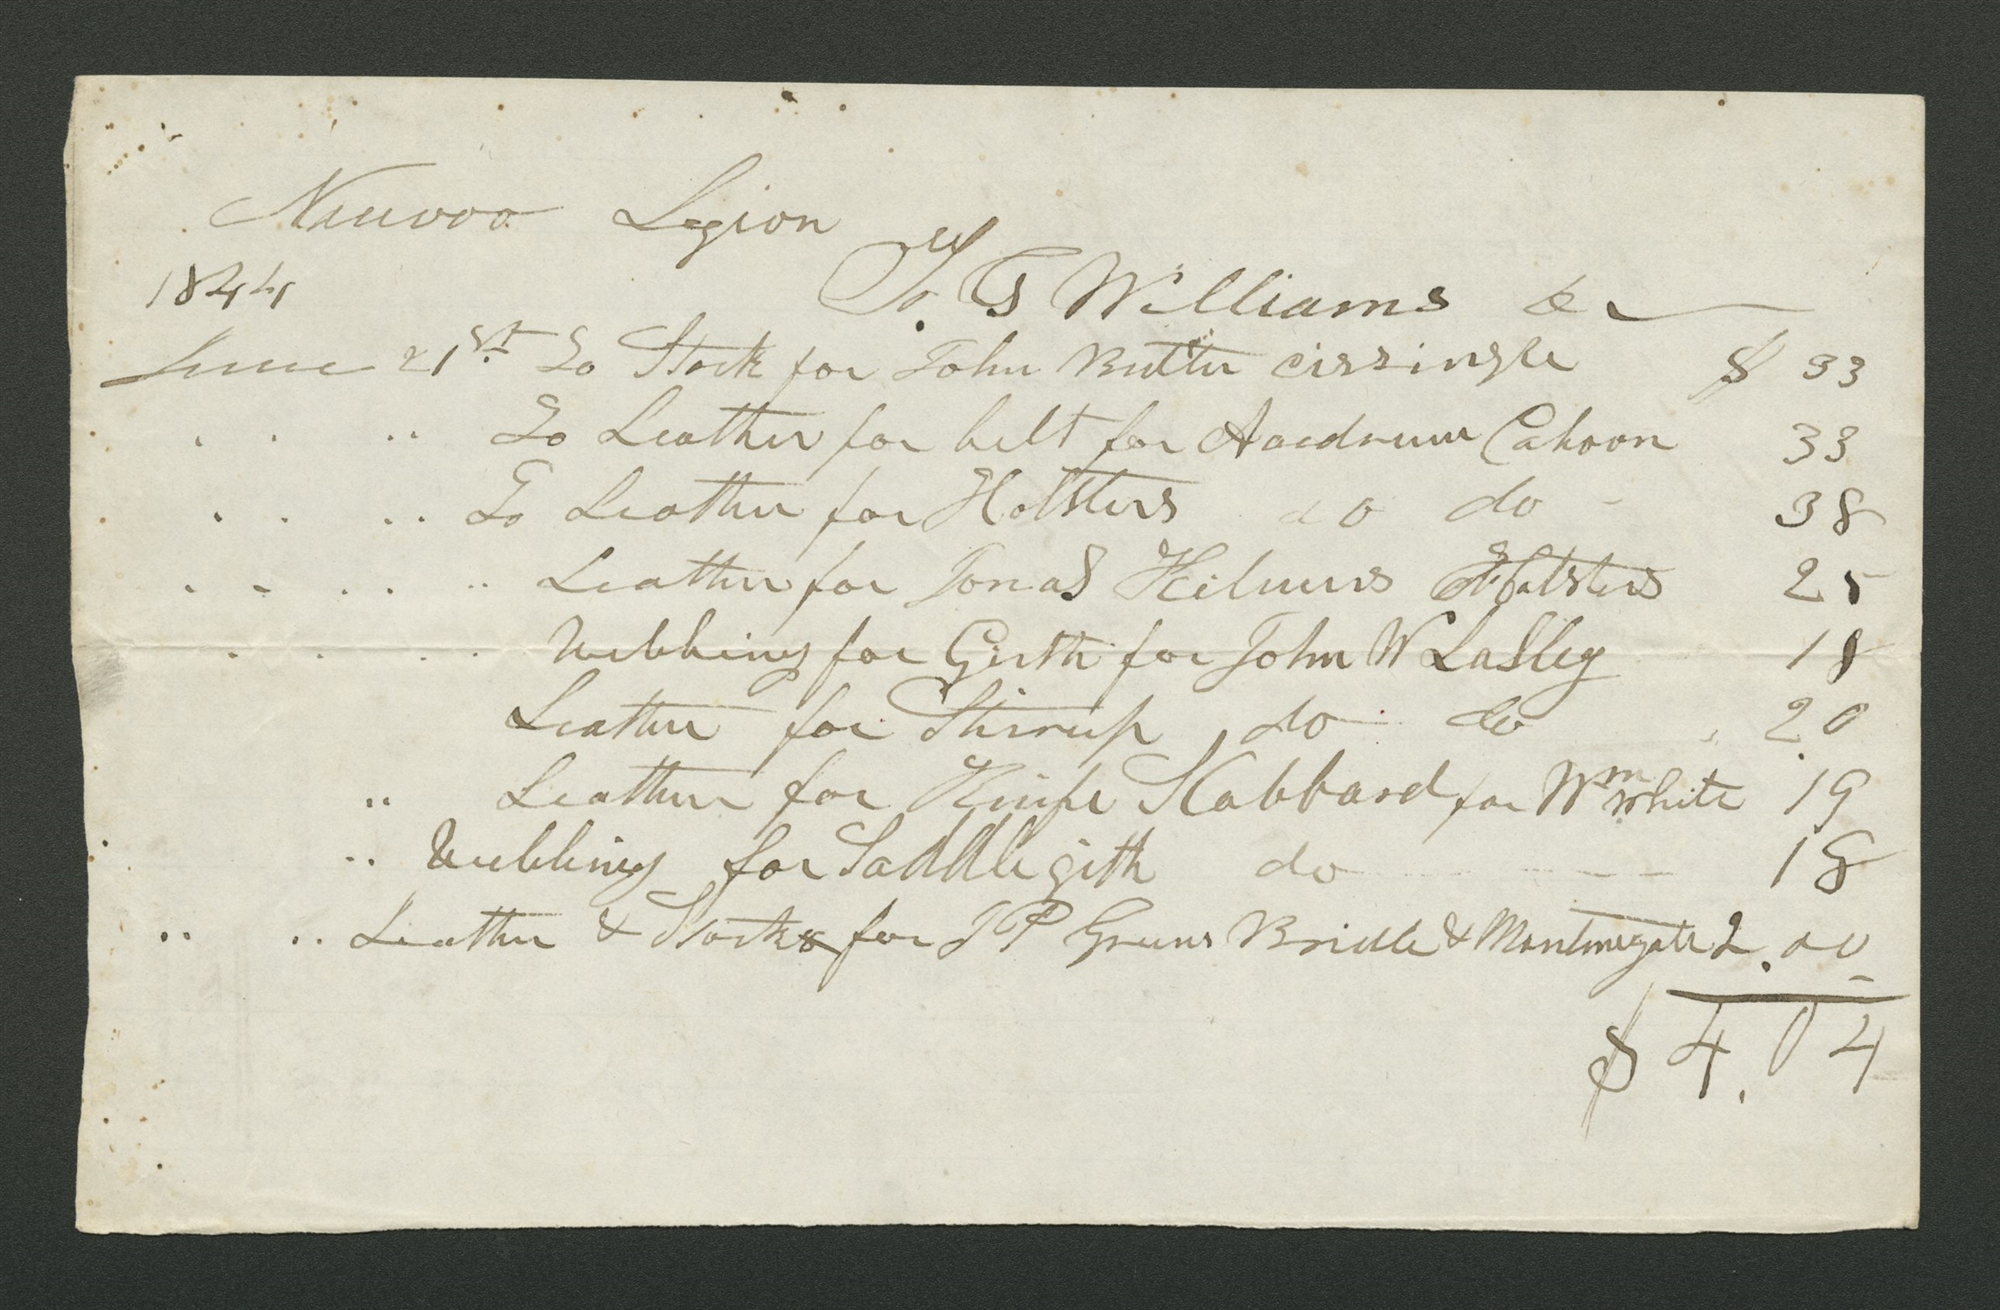 Nauvoo Legion
1844 To. G Williams Dr
June 21st. To Stock for John Butter cirsingle $ 33
" " To Leather for belt for Cahoon 33
" " To Leather for Holsters do do - 38
" " " Leather for Jonas Holsters 25
" " Webbing for Girth for John W Lasley 18
Leather for Stirrup do do 20
" Leather for Knife Scabbard for Wm White 19
" Webbing for Saddle girth do - - - 18
" " Leather & Stock for J P Greens Bridle & 2.00
$ 4.04